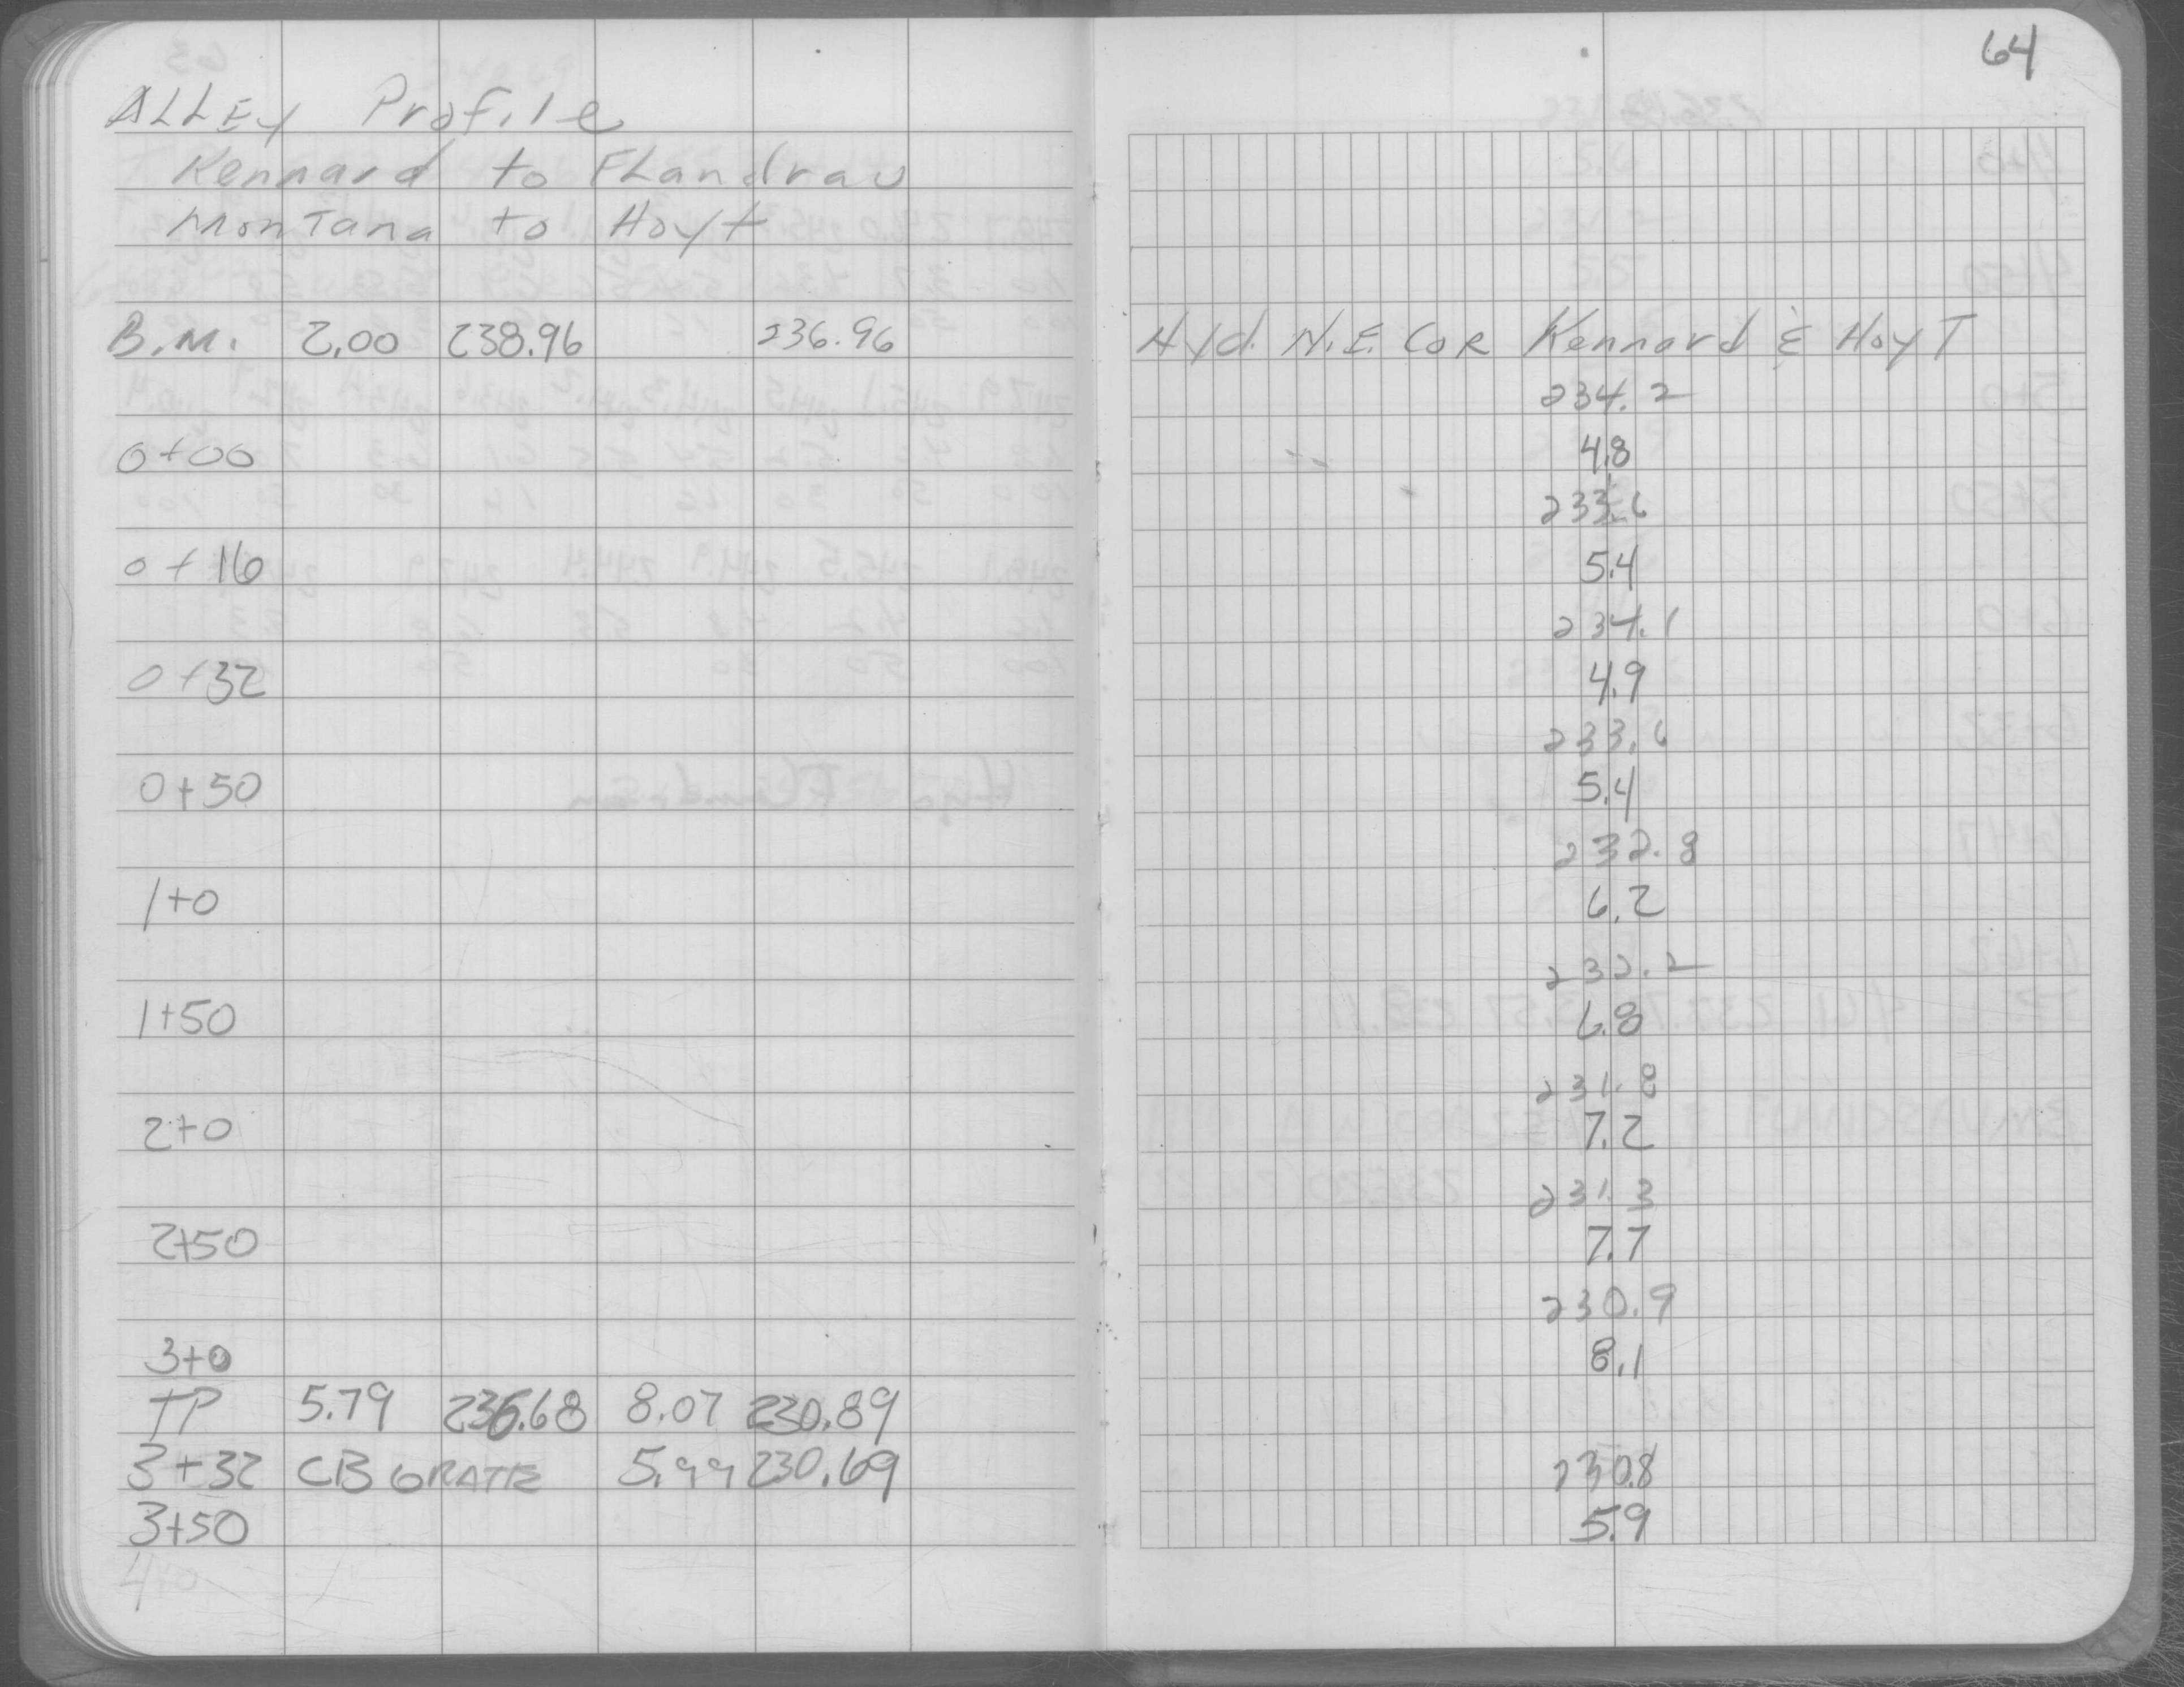 64
ALLEY Profile
Kennard to FLandrau
Montana to Hoyt
B.M. 2.00 238.96 236.96 Hyd. N.E. COR Kennard & Hoyt
234.2
0+00 4.8
233.6
0+16 5.4
234.1
0+32 4.9
233.6
0+50 5.4
232.8
1+0 6.2
232.2
1+50 6.8
231.8
2+0 7.2
231.3
2+50 7.7
230.9
3+0 8.1
TP 5.79 236.68 8.07 230.89
3+32 CB GRATE 5.99 230.69 230.8
3+50 5.9
4+0